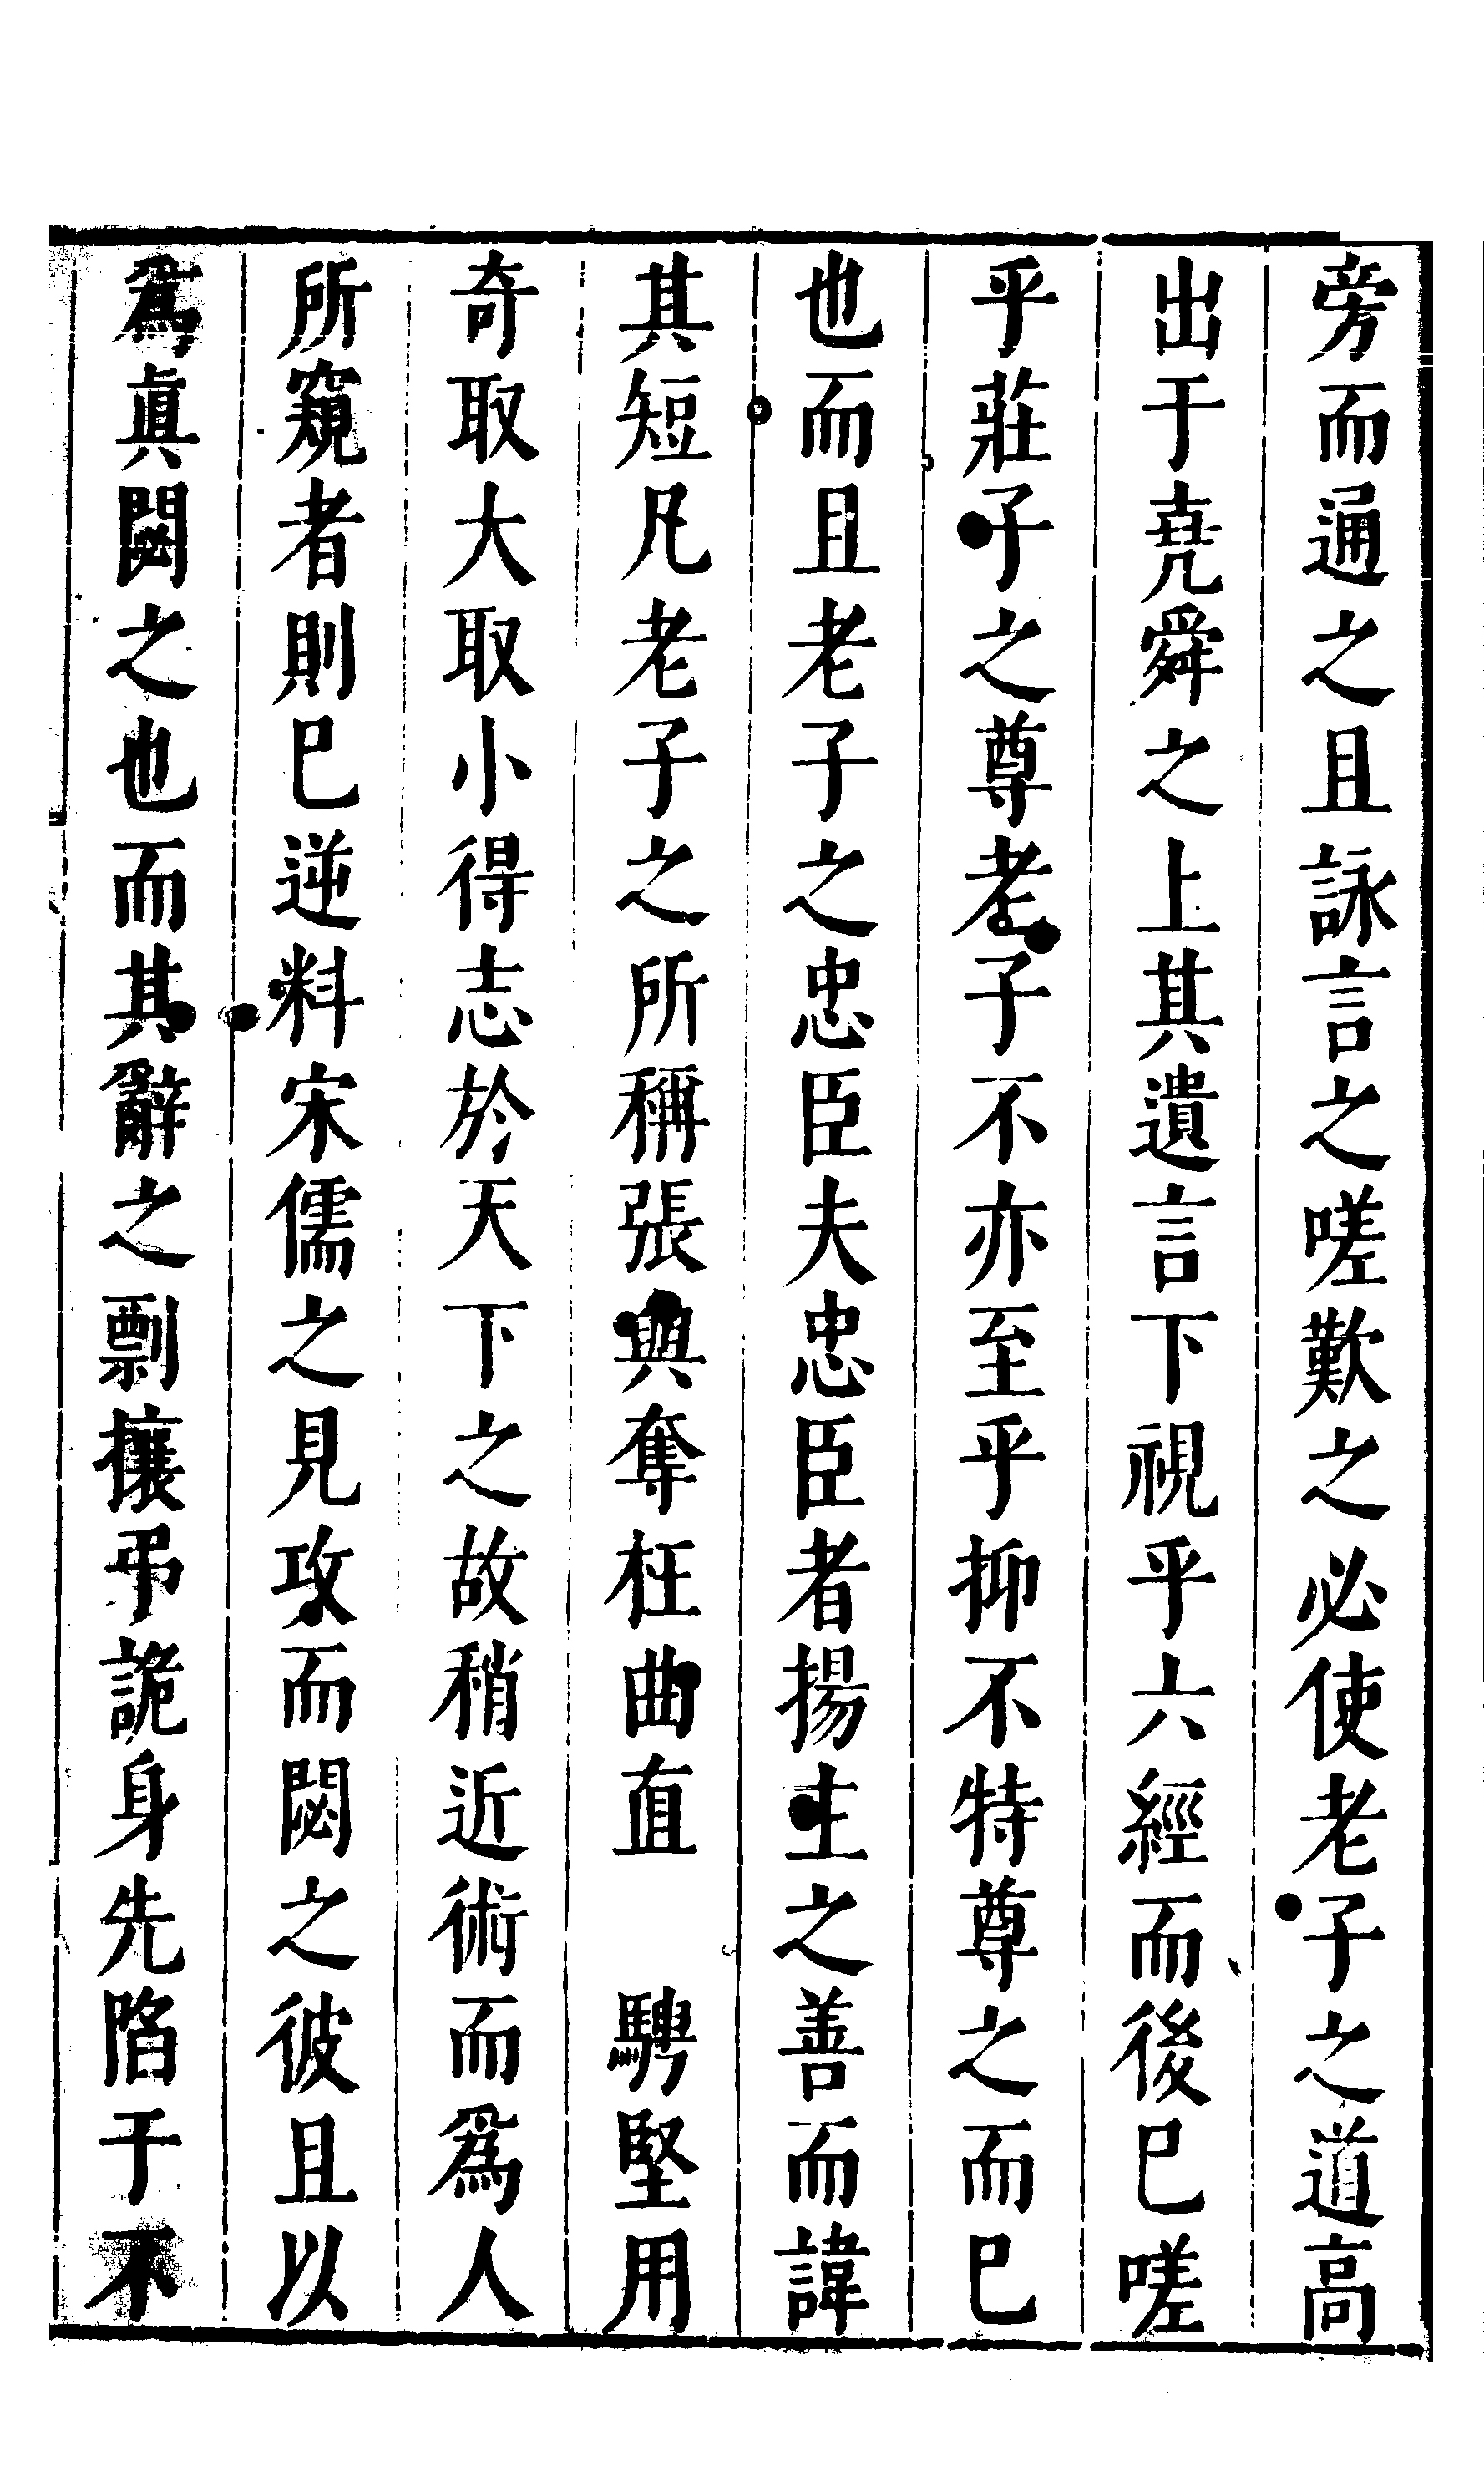 旁而通之且詠言之嗟歎之必使老子之道高
出于堯舜之上其遺言下視乎六經而後巳嗟
乎莊子之尊老子不亦至乎抑不特尊之而巳
也而且老子之忠臣夫忠臣者揚主之善而諱
其短凡老子之所稱張與奪枉曲直　騁堅用
奇取大取小得志於天下之故稍近術而爲人
所窺者則巳逆料宋儒之見攻而閟之彼且以
爲眞閟之也而其辭之剽攘弔詭身先陷于不